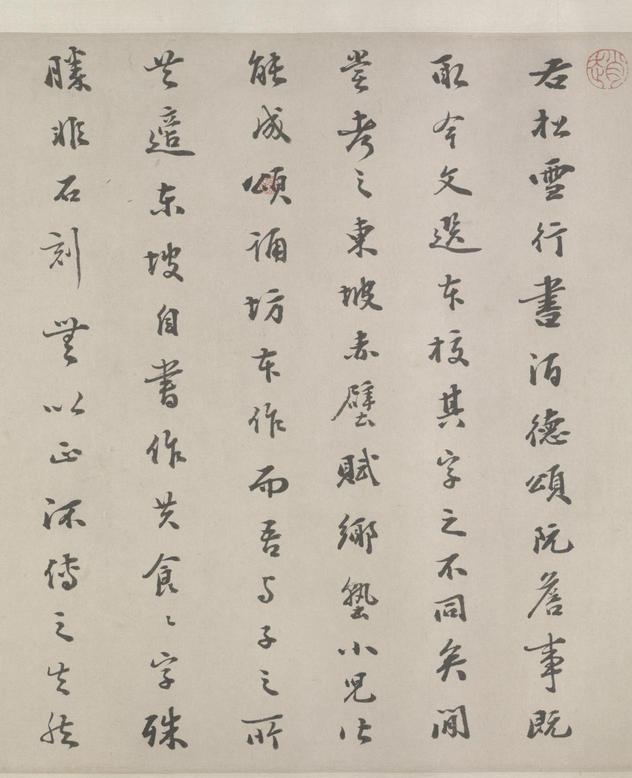 右松雪行書酒德頌阮詹事既
取今文選本校其字之不同矣間
嘗考之東坡赤壁賦鄉塾小兒皆
能成頌誦坊本作而吾与子之所
共適東坡自書作共食々字殊
勝非石刻無以正流傳之失然